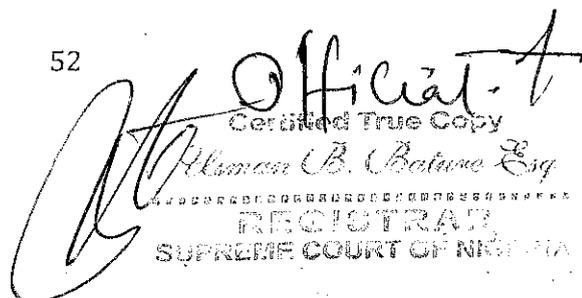 52
Official
Certified True Copy
Usman B. Bature Esq
REGISTRAR
SUPREME COURT OF NIGERIA